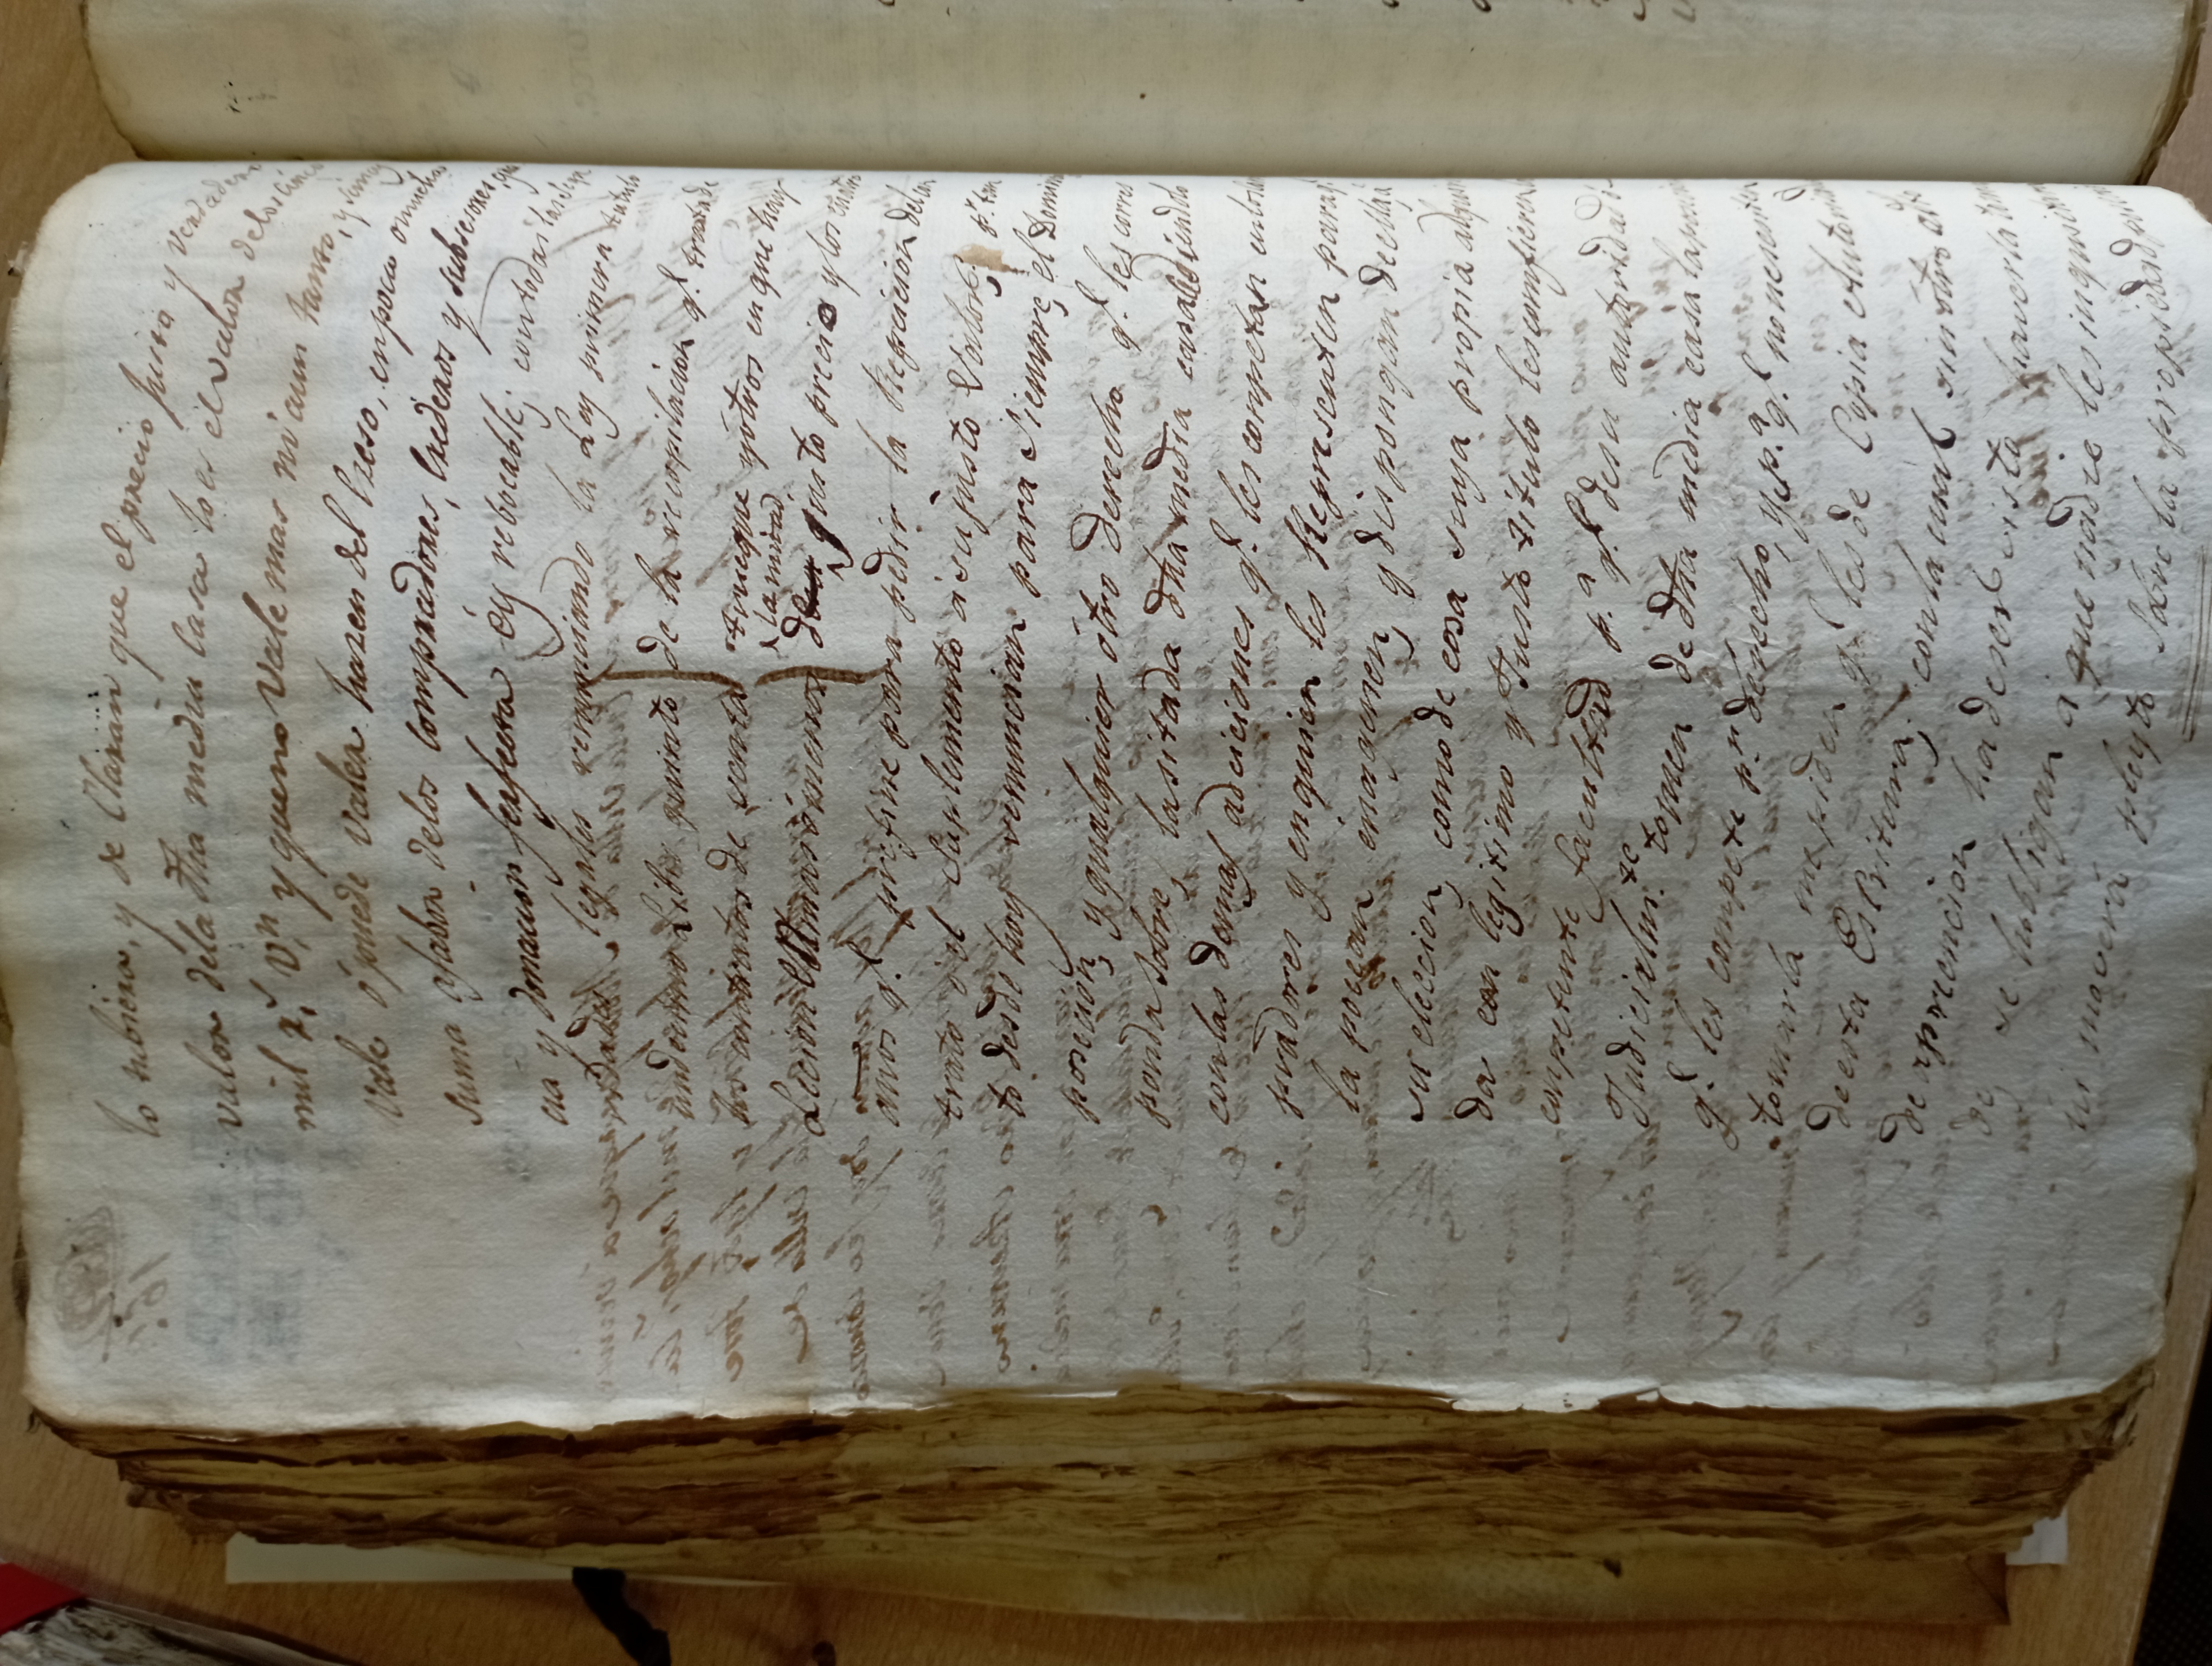 lo tubiera, y de Claran que el precio justo y verdadero
valor dela dha media Casa lo es el valor delos Cinco
mil r.s v.n y queno Vale mas ni aun tanto, y si mas
Vale ó puede valer hazen del Exeso, enpoca omucha
suma afabor delos Compradores, Erederos y subsesores, gra
cia y donacion perfecta éy rebocable; contodas las Segu
ridades legales renunciando la Ley primera titulo
undecimo Libro quinto de la recopilacion q.e trata de
los contratos de venta trueque yótros en que hay
Lecion en mas ó menos la mitad del justo precio y los cuatro
años q.e prefine para pedir la Repcicion del con
trato ó el Suplemento á su justo Valor; p.r tan
to desde hoy renuncian para Siempre, el Dominio
posecion, y qualquier ótro derecho q.e les corres
ponda sobre, lasitada dha media casa cediendolo
conlas demas adciciones q.e les conpetan enlos Com
pradores y enquien les Representen paraq.e
la poceean enagenen, y dispongan de ella, á
su eleccion, como de cosa suya propia adquiri
da con legitimo y Justo titulo lesconfieren
conpetente facultad p.a q.e desu autoridad ó
Judicialm.te tomen de dha media casa la posecion
q.e les compete p.r derecho, y p.a q.e no nesesiten
tomarla me piden q.e les de Copia Autorizada
deesta Escritura; conla cual sin ótro acto
de aprencion hadeser visto haverla toma
do, se hobligan á que nadie les inquietara
ni moverá pleyto Sobre la propiedad posecion